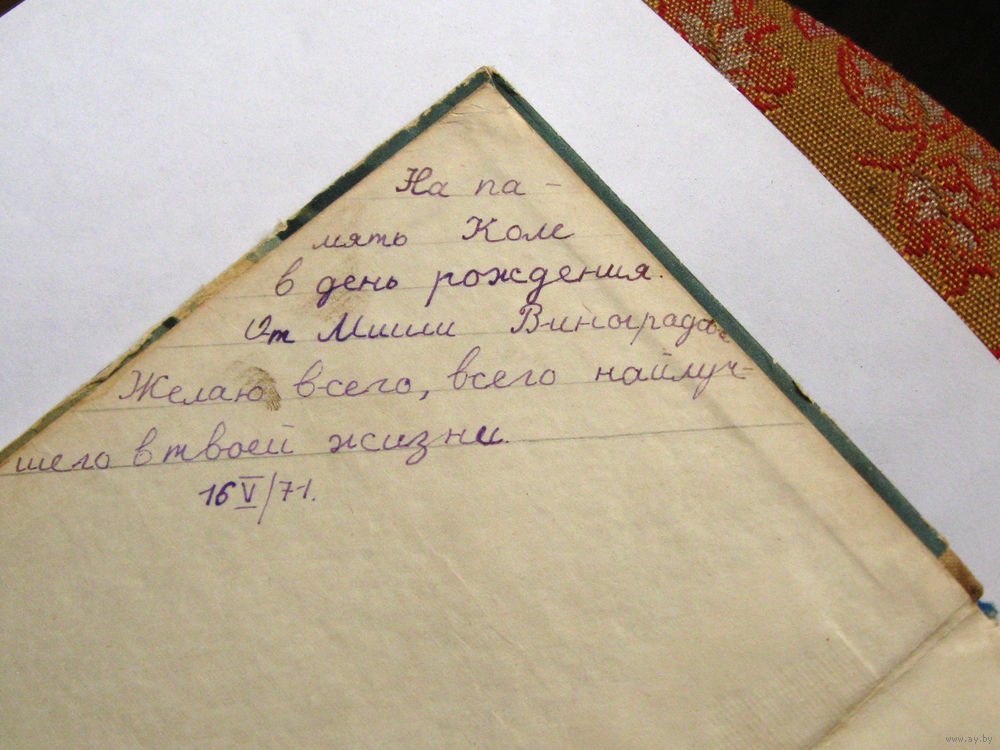 На па-
мять Коле
в день рождения.
От Миши Виноградова
Желаю всего, всего найлуч-
шего в твоей жизни.
16 V/71.
www.ay.by